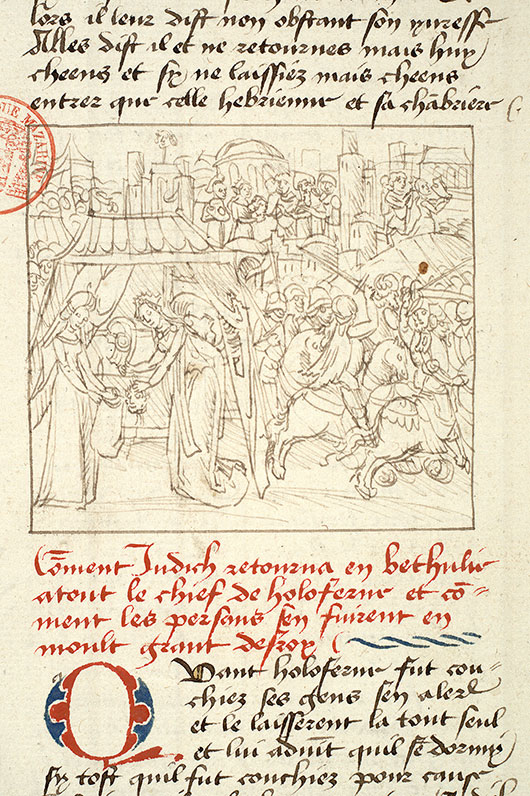 lors il leur dist non obstant son yuresse
Alles dist il et ne retournes mais huy
cheens et sy ne laissiez mais cheens
entrer que celle hebrienne et sa chābriere
QUE MAZARINE
Cōment Judich retourna en bethulie
atout le chief de holoferne et cō-
ment les persans sen fuirent en
moult grant desroy
Quant holoferne fut cou-
chiez ses gens sen alerēt
et le laisserent la tout seul
et lui aduīt quil se dormy
sy tost quil fut couchiez pour cause